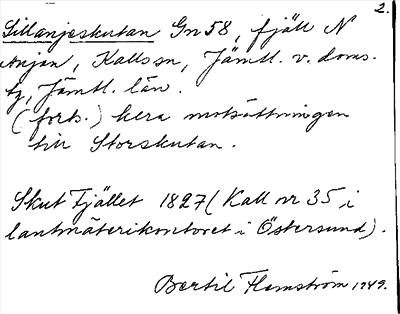 2.
Lillanjeskutan Gn 58, fjäll N
Anjan, Kallssn, Jämtl. v. doms.
tg, Jämtl. län.
(forts.) hera motsättningen
till Storskutan.
Skut Fjället 1827 (Kall nr 35 i
lantmäterikontoret i Östersund).
Bertil Flemström 1949.